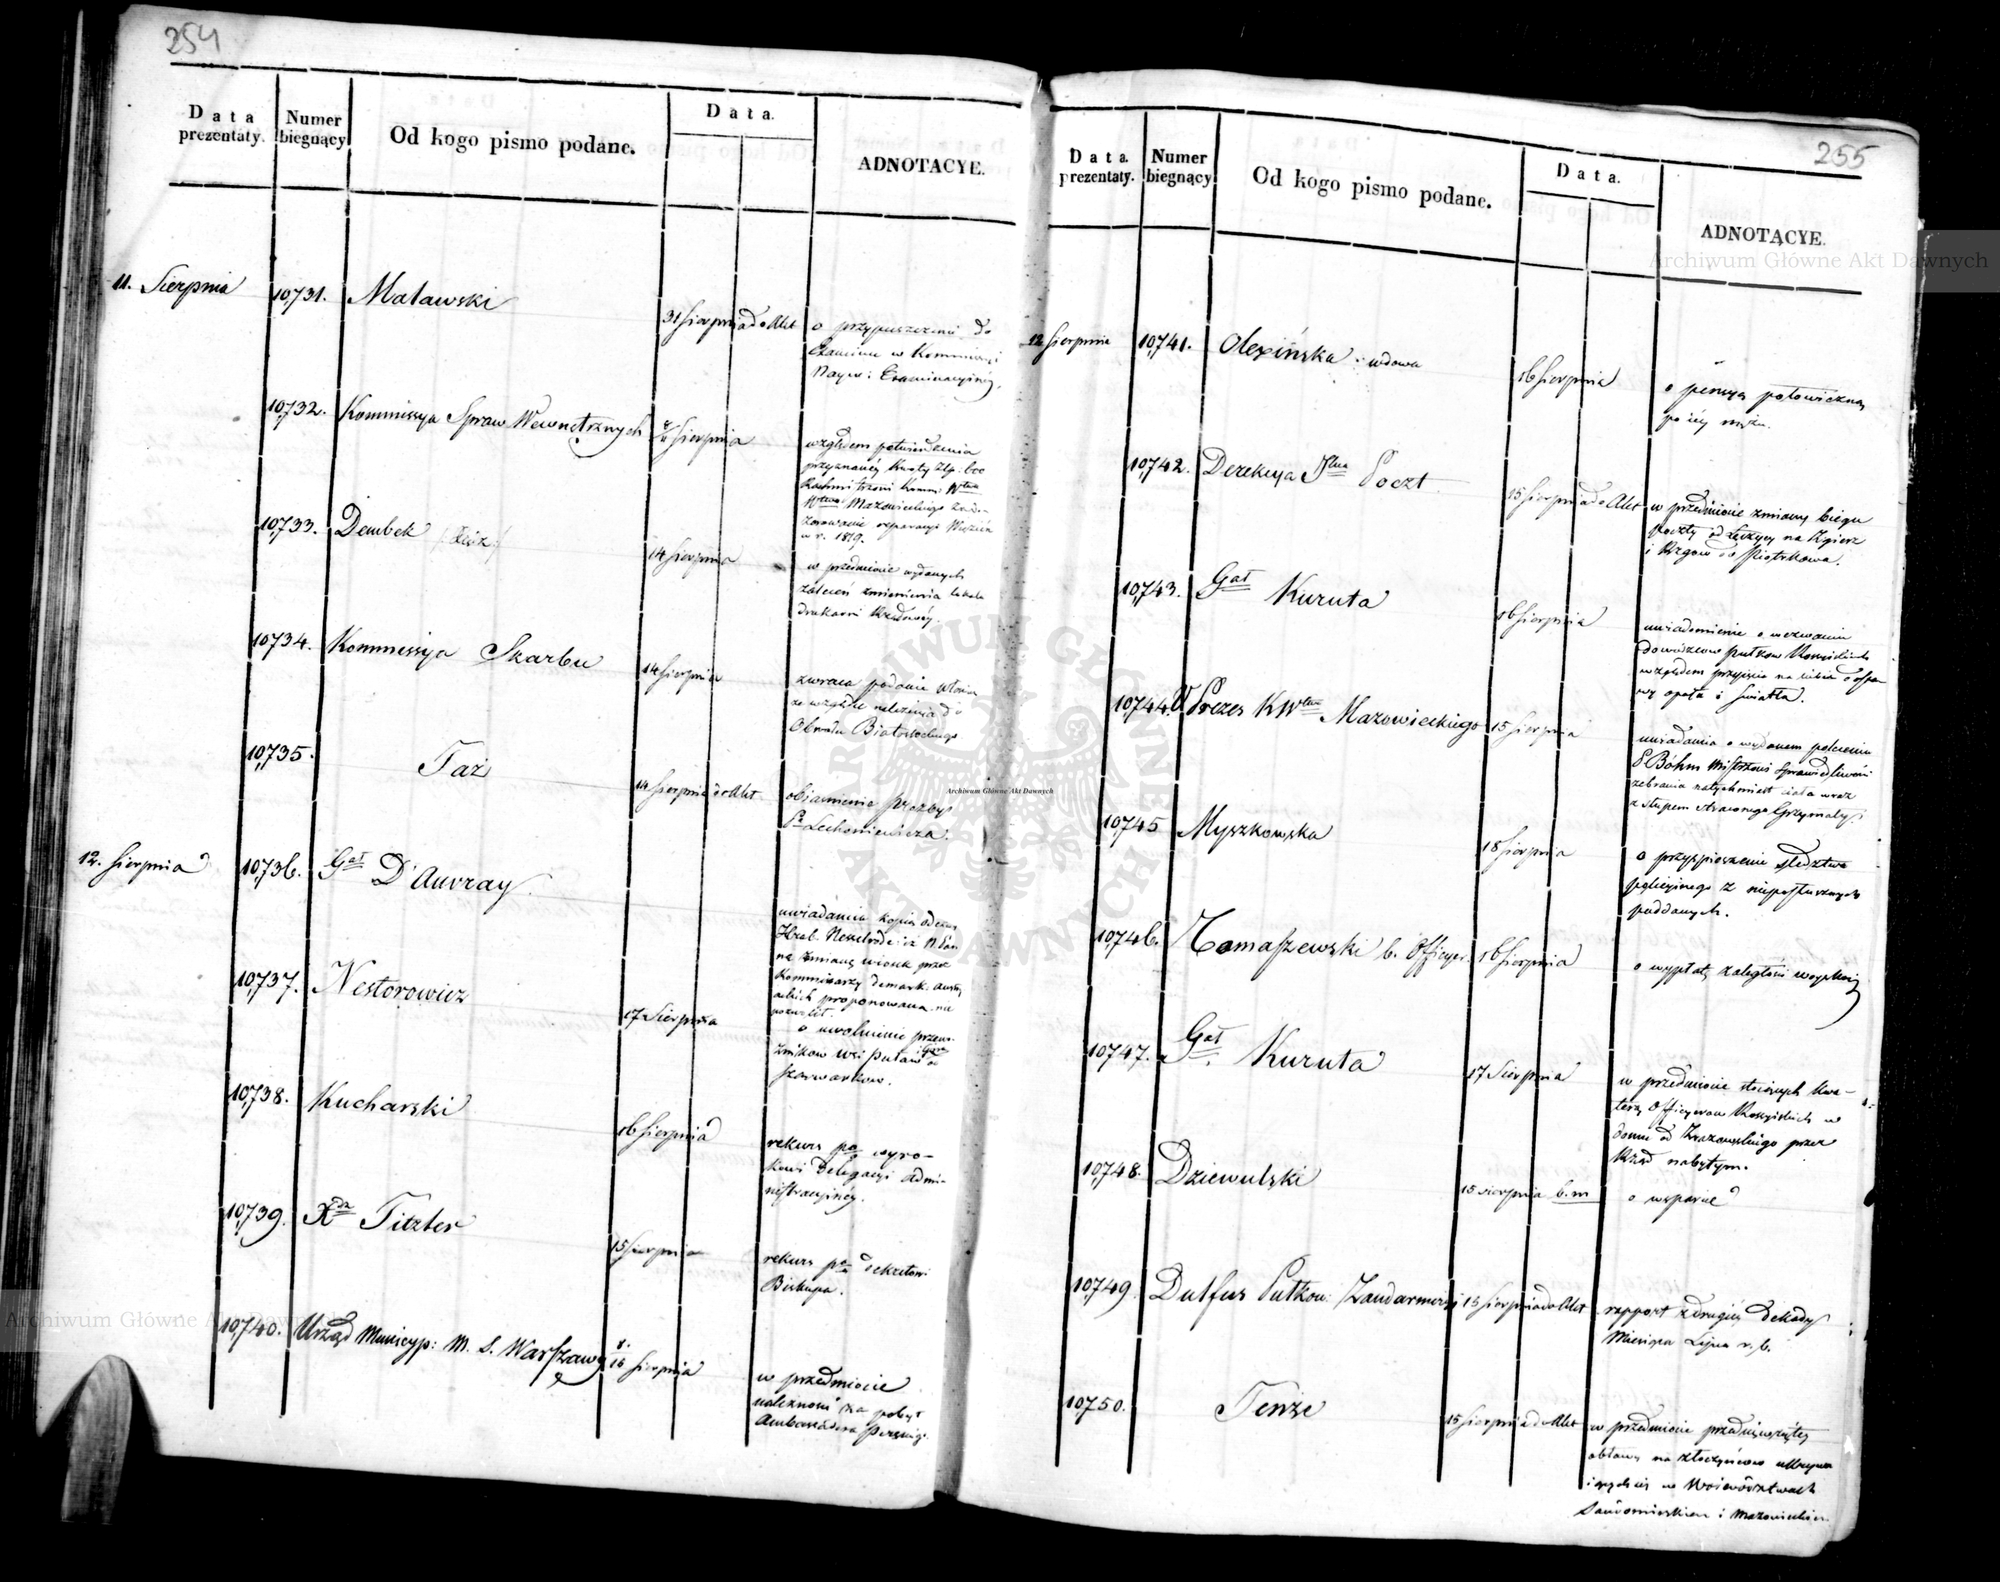 254
Data prezentaty.
Numer biegnący
Od kogo pismo podane.
Data.
ADNOTACYE.
11. Sierpnia
10,731. Matawski
31 Sierpnia do Akt
o przypuszczenie do
Examinu w Kommissyi
Nayw: Examinacyinéy.
10,732. Kommissya Spraw Wewnętrznych
Sierpnia
względem potwierdzenia
przyznanéy Kwoty Złp: 600
w r. 1819.
10,733. Dembek
14 Sierpnia
w przedmiocie wydanych
zaleceń zmienienia lokalu
drukarni Rządowéy.
10,734. Kommissya Skarbu
14 Sierpnia
zwraca podanie
ze względu należenia do
Obwodu Białostockiego
10,735. Taż
14 Sierpnia do Akt
obiaśnienie prozby
Pa Lechoniewicza.
12. Sierpnia
10,736. Gał D'Auvray
uwiadamia kopią odezwy
Hrab. Nesselrode: iż N. Pan
na zmianę wiosek przez
Kommissarzy demark: austry
ackich proponowaną nie
pozwolił.
10,737. Nestorowicz
17 Sierpnia
o uwolnienie
wsi
szarwarków.
10,738. Kucharski
16 Sierpnia
rekurs pko wyro-
kowi Delegacyi admi-
nistracyinéy.
10,739. Xdz Titzler
15 Sierpnia
rekurs pko dekretowi
Biskupa.
10,740. Urząd Municyp: M. S. Warszawy
8/16 Sierpnia
w przedmiocie
należności za pobyt
Ambassadora Perskiego.
255
Data. prezentaty.
Numer biegnący
Od kogo pismo podane.
Data.
ADNOTACYE.
12 Sierpnia
10,741. Olexińska wdowa
16 Sierpnia
o pensyą połowiczną
po iéy mężu.
10,742. Derekcya Jlna Poczt
15 Sierpnia do Akt
w przedmiocie zmiany biegu
Poczty od Łęczycy na Zgierz
i Rzgow do Piotrkowa.
10,743. Gał Kuruta
16 Sierpnia
uwiadomienie o wezwaniu
dowódzców pułków Rossyiskich
względem przyięcia na siebie dosta
wy opału i światła.
10,744. Prezes KWtwa Mazowieckiego
15 Sierpnia
uwiadamia o wydanem poleceniu
P Böhm Mistrzowi Sprawiedliwości
zebrania natychmiast ciała wraz
z słupem straconego Grzymały.
10,745 Myszkowska
18 Sierpnia
o przyspieszenie śledztwa
policyinego z nieposłusznych
poddanych.
10,746. Tomaszewski b. Officyer
16 Sierpnia
o wypłatę zaległości woyskowéy
10,747. Gał Kuruta
17 Sierpnia
w przedmiocie stoiących kwa-
terą Officyerow Rossyiskich w
domu od Zrazowskiego przez
Rząd nabytym.
10,748. Dziewulski
15 sierpnia b. m
o wsparcie
10,749. Dulfus Pułkow: Żandarmeryi
15 Sierpnia do Akt
rapport z drugiéy dekady
Miesiąca Lipca r. b.
10,750. Tenże
15 Sierpnia do Akt
w przedmiocie przedsięwziętéy
obławy na złoczyńców ukrywa
iących się w Województwach
Sandomierskiem i Mazowieckiem
Archiwum Główne Akt Dawnych
Archiwum Główne Akt Dawnych
Archiwum Główne Akt Dawnych
ARCHIWUM GŁÓWNE AKT DAWNYCH